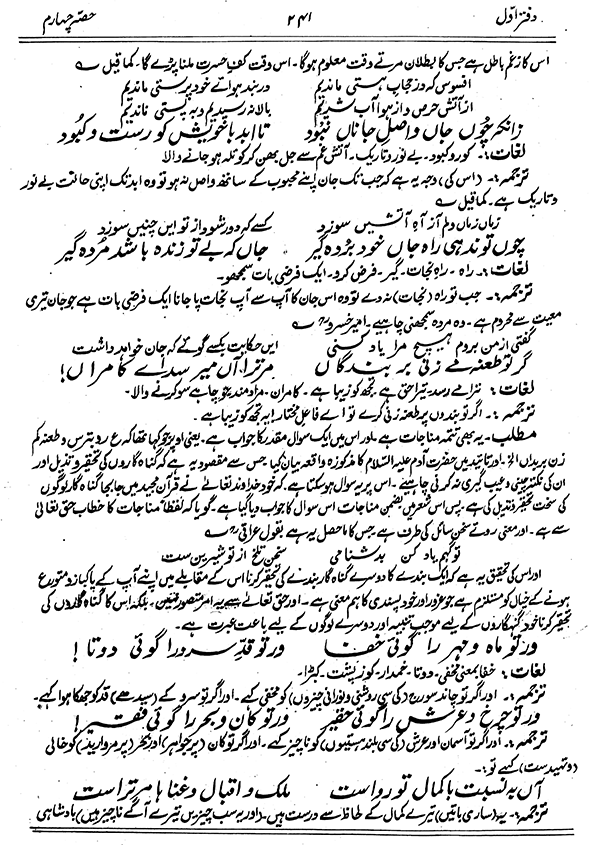 دفترِ اوّل ۲۴۱ حصّہ چہارم
اس کا زعم باطل ہے جس کا بطلان مرتے وقت معلوم ہوگا۔ اس وقت کفِ حسرت ملنا پڑے گا۔ کما قیل
افسوس کہ در حجابِ ہستی ماندیم دربندِ ہوائے خود پرستی ماندیم
از آتشِ حرص و از ہوا آب شدیم بالا نہ رسیدیم و بہ پستی ماندیم
زانکہ چوں جاں واصلِ جاناں نبود تا ابد با خویش کورست و کبود
لغات:۔ کور و کبود۔ بے نور و تاریک۔ آتشِ غم سے جل بھن کر کوئلہ ہو جانے والا
ترجمہ:۔ (اس کی) وجہ یہ ہے کہ جب تک جان اپنے محبوب کے ساتھ واصل نہ ہو تو وہ ابد تک اپنی حالت بے نور
و تاریک ہے۔ کما قیل
زماں زماں دلم از آہِ آتشیں سوزد کسے کہ دور شود از تو ایں چنیں سوزد
چوں تو ندہی راہ جاں خود بردہ گیر جاں کہ بے تو زندہ باشد مردہ گیر
لغات:۔ راہ۔ راہِ نجات۔ گیر۔ فرض کرو۔ ایک فرضی بات سمجھو۔
ترجمہ:۔ جب تو راہ (نجات) نہ دے تو وہ اس جان کا آپ سے آپ نجات پا جانا ایک فرضی بات ہے جو جان تیری
معیت سے محروم ہے۔ وہ مردہ سمجھنی چاہیے۔ امیر خسرو رح
گفتی از من بردم ہیچ مرا یاد کنی ایں حکایت بکسے گوئے کہ جاں خواہد داشت
گر تو طعنہ مے زنی بر بندگاں مر ترا آں میرسد اے کامراں!
لغات:۔ ترا مے رسد۔ ترا حق ہے۔ تجھ کو زیبا ہے۔ کامران۔ مراد مند۔ جو چاہے سو کرنے والا۔
ترجمہ:۔ اگر تو بندوں پر طعنہ زنی کرے تو اے فاعلِ مختار! یہ تجھ کو زیبا ہے۔
مطلب۔ یہ بھی تتمۂ مناجات ہے۔ اور اس میں ایک سوالِ مقدر کا جواب ہے۔ یعنی اوپر جو کہا تھا کہ ع رو بترس و طعنہ کم
زن بر بداں الخ۔ اور تائید میں حضرت آدم علیہ السلام کا مذکورہ واقعہ بیان کیا جس سے مقصود یہ ہے کہ گناہ گاروں کی تحقیر و تذلیل اور
ان کی نکتہ چینی و عیب گیری نہ کرنی چاہیے۔ اس پر یہ سوال ہو سکتا ہے کہ خود خداوند تعالیٰ نے قرآن مجید میں جابجا گناہ گار لوگوں
کی سخت تحقیر و تذلیل کی ہے۔ پس اس شعر میں بضمنِ مناجات اس سوال کا جواب دیا گیا ہے۔ گویا کہ لفظاً مناجات کا خطاب حق تعالیٰ
سے ہے۔ اور معنیً روئے سخن سائل کی طرف ہے جس کا ماحصل یہ ہے بقول عراقی رح
تو گہم یاد کن بدشنامی سخنِ تلخ از تو شیرین ست
اور اس کی تحقیق یہ ہے کہ ایک بندے کا دوسرے گناہ گار بندے کی تحقیر کرنا اس کے مقابلے میں اپنے آپ کے پاکباز و متورع
ہونے کے خیال کو مستلزم ہے جو غرور اور خود پسندی کا ہم معنی ہے۔ اور حق تعالیٰ سے یہ امر متصور نہیں۔ بلکہ اس کا گناہ گاروں کی
تحقیر کرنا خود گنہگاروں کے لیے موجبِ تنبیہ اور دوسرے لوگوں کے لیے باعثِ عبرت ہے۔
ور تو ماہ و مہر را گوئی خفا ور تو قدِّ سرو را گوئی دوتا!
لغات:۔ خفا بمعنی مخفی۔ دوتا۔ خمدار۔ کوزپشت۔ کبڑا۔
ترجمہ:۔ اور اگر تو چاند سورج (کی سی روشن و نورانی چیزوں) کو مخفی کہے۔ اور اگر تو سرو کے (سیدھے) قد کو جھکا ہوا کہے۔
ور تو چرخ و عرش را گوئی حقیر ور تو کان و بحر را گوئی فقیر!
ترجمہ:۔ اور اگر تو آسمان اور عرش (کی سی بلند ہستیوں) کو ناچیز کہے۔ اور اگر تو کان (پُر جواہر) اور بحر (پُر مروارید) کو خالی
(و تہیدست) کہے تو:۔
آں بہ نسبت با کمالِ تو رواست ملک و اقبال و غنا ہا مر تراست
ترجمہ:۔ یہ (ساری باتیں) تیرے کمال کے لحاظ سے درست ہیں۔ (اور یہ سب چیزیں تیرے آگے ناچیز ہیں) بادشاہی